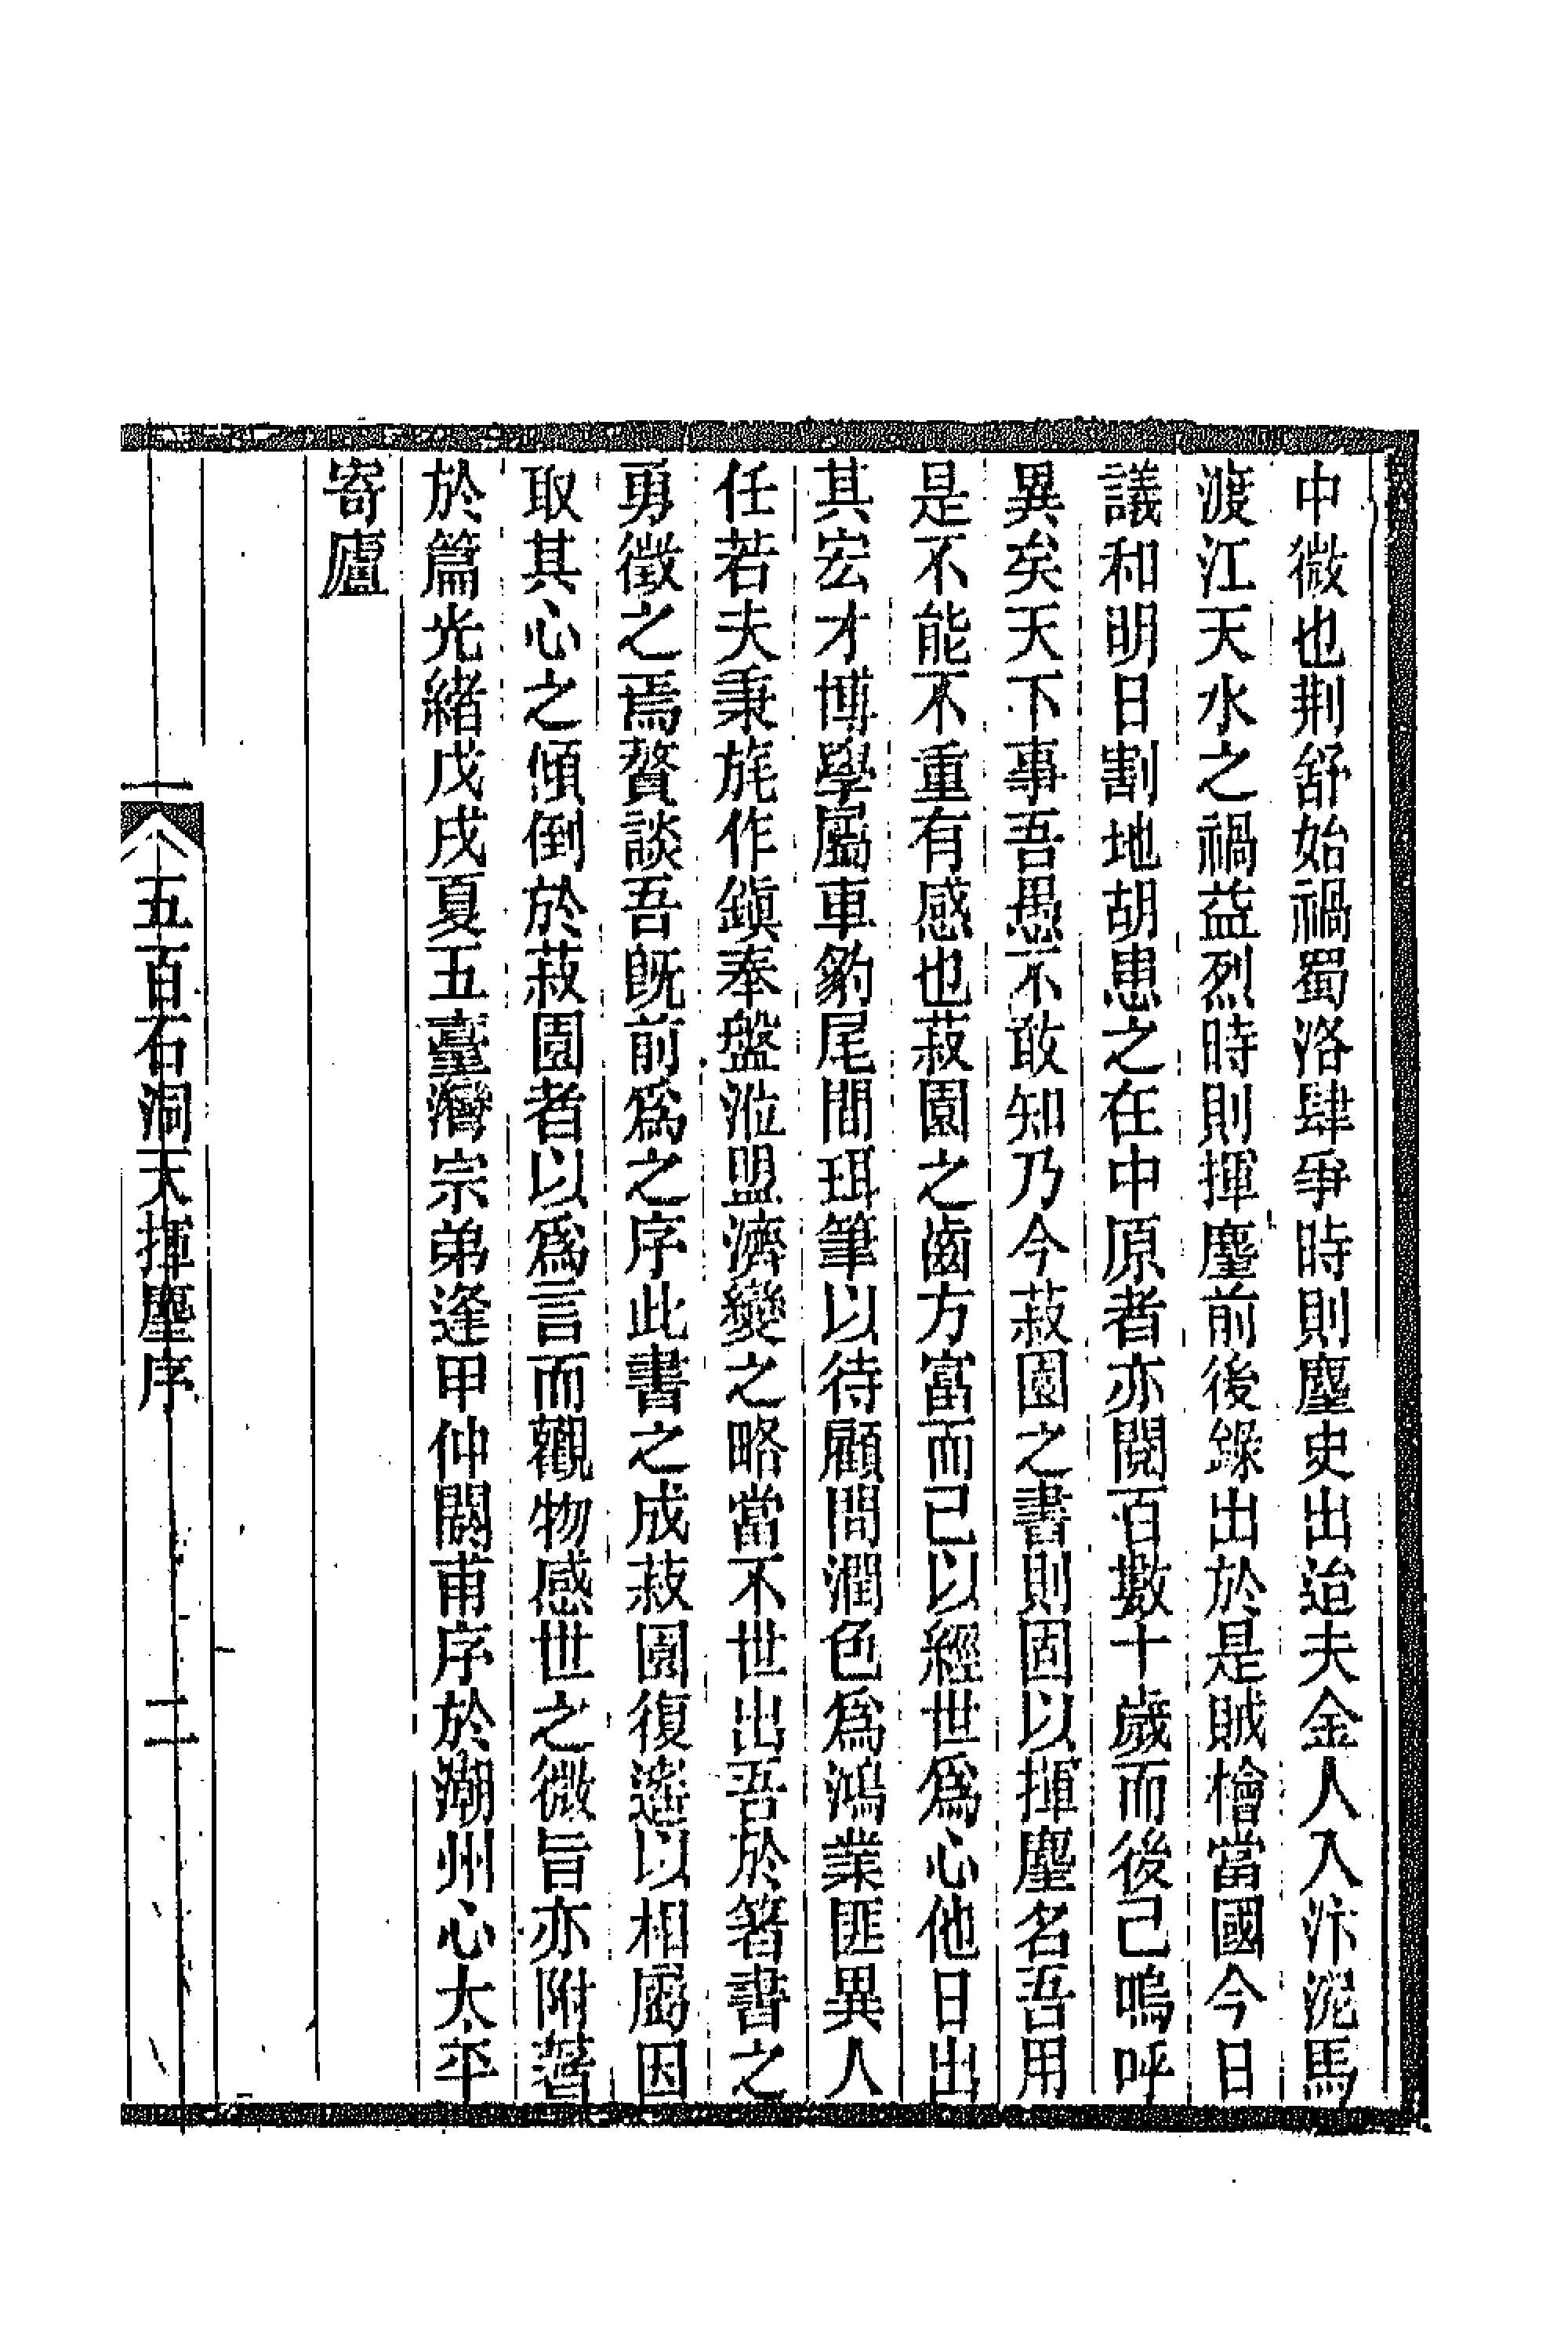 中微也荆舒始禍蜀洛肆爭時則麈史出迨夫金人入汴泥馬
渡江天水之禍益烈時則揮麈前後錄出於是賊檜當國今日
議和明日割地胡患之在中原者亦閱百數十歲而後己嗚呼
異矣天下事吾愚不敢知乃今菽園之書則固以揮麈名吾用
是不能不重有感也菽園之齒方富而己以經世爲心他日出
其宏才博學屬車豹尾間珥筆以待顧問潤色爲鴻業匪異人
任若夫秉旄作鎭奉盤涖盟濟變之略當不世出吾於箸書之
勇徵之焉贅談吾旣前爲之序此書之成菽園復遙以相屬因
取其心之傾倒於菽園者以爲言而觀物感世之微旨亦附著
於篇光緒戊戌夏五臺灣宗弟逢甲仲閼甫序於潮州心太平
寄廬
五百石洞天揮麈序
二